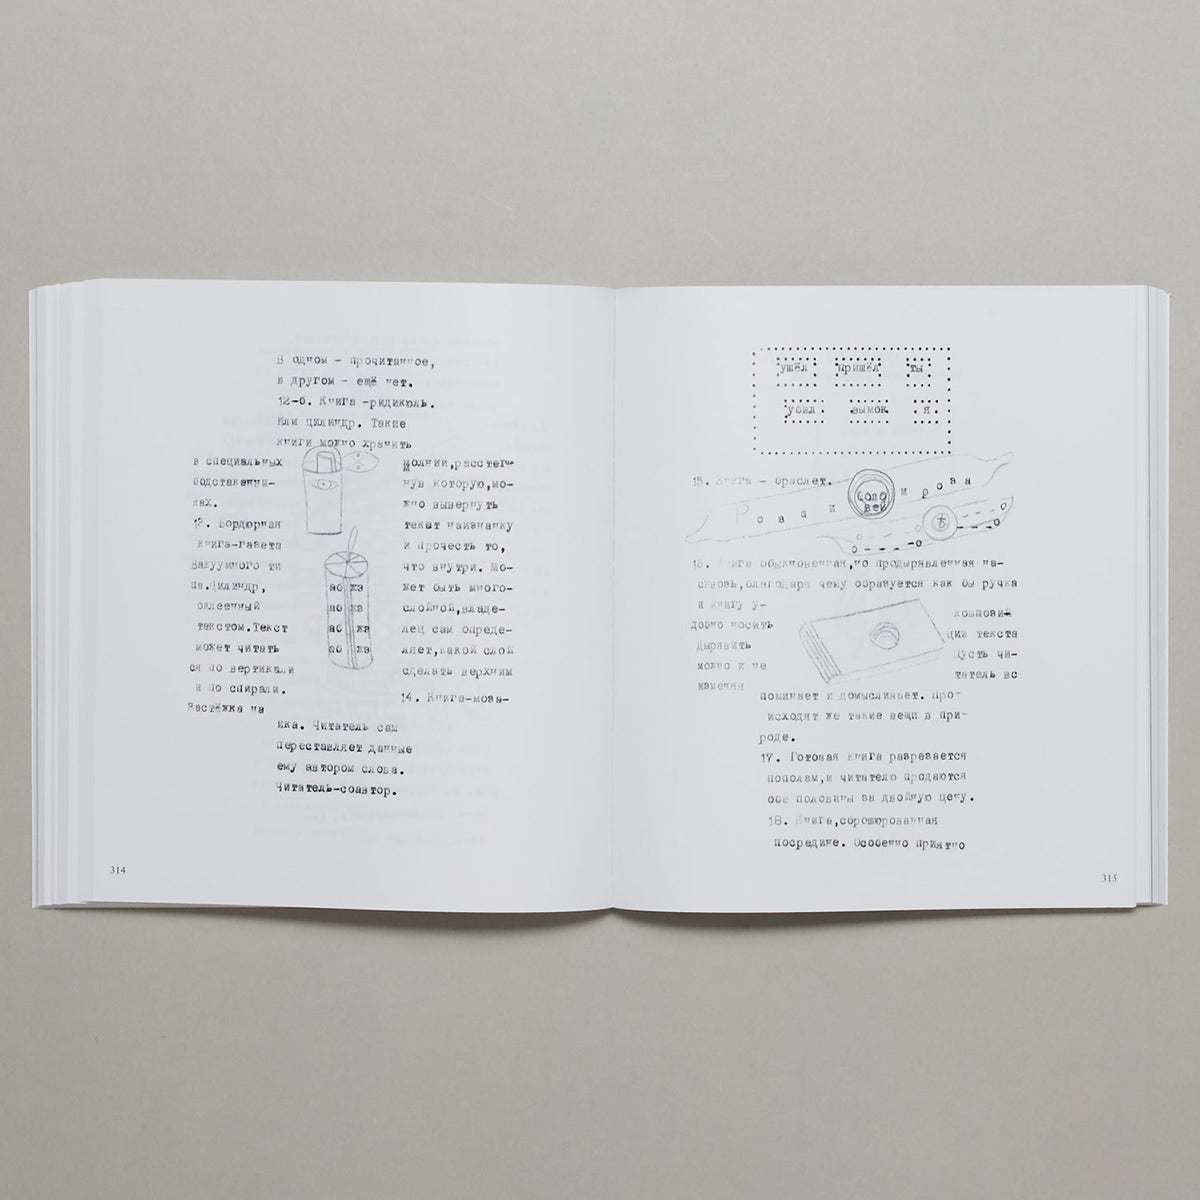 В одном - прочитанное,
в другом - ещё нет.
12-б. Книга -ридикюль.
Или цилиндр. Такие
книги можно хранить
в специальных
подстаканни-
ках.
13. Бордюрная
книга-газета
вакуумного ти
па.Цилиндр,
оклеенный
текстом.Текст
может читать
ся по вертикали
и по спирали.
Застёжка на
аб жз
аб жз
аб жз
аб жз
молнии,расстег-
нув которую,мо-
жно вывернуть
текст наизнанку
и прочесть то,
что внутри. Мо-
жет быть много-
слойной,владе-
лец сам опреде-
ляет,какой слой
сделать верхним
14. Книга-моза-
ика. Читатель сам
переставляет данные
ему автором слова.
Читатель-соавтор.
314
ушёл пришёл ты
усил вымок я.
15. Книга - браслет.
Роза и соло вей и роза
Ѣ
16. Книга обыкновенная,но продырявленная на-
сквозь,благодаря чему образуется как бы ручка
и книгу у-
добно носить
Дырявить
можно и не
изменяя
композий
ции текста
Пусть чи-
татель вс
поминает и домысливает. Про-
исходят же такие вещи в при-
роде.
17. Готовая книга разрезается
пополам,и читателю продаются
обе половины за двойную цену.
18. Книга,сброшюрованная
посредине. Особенно приятно
315